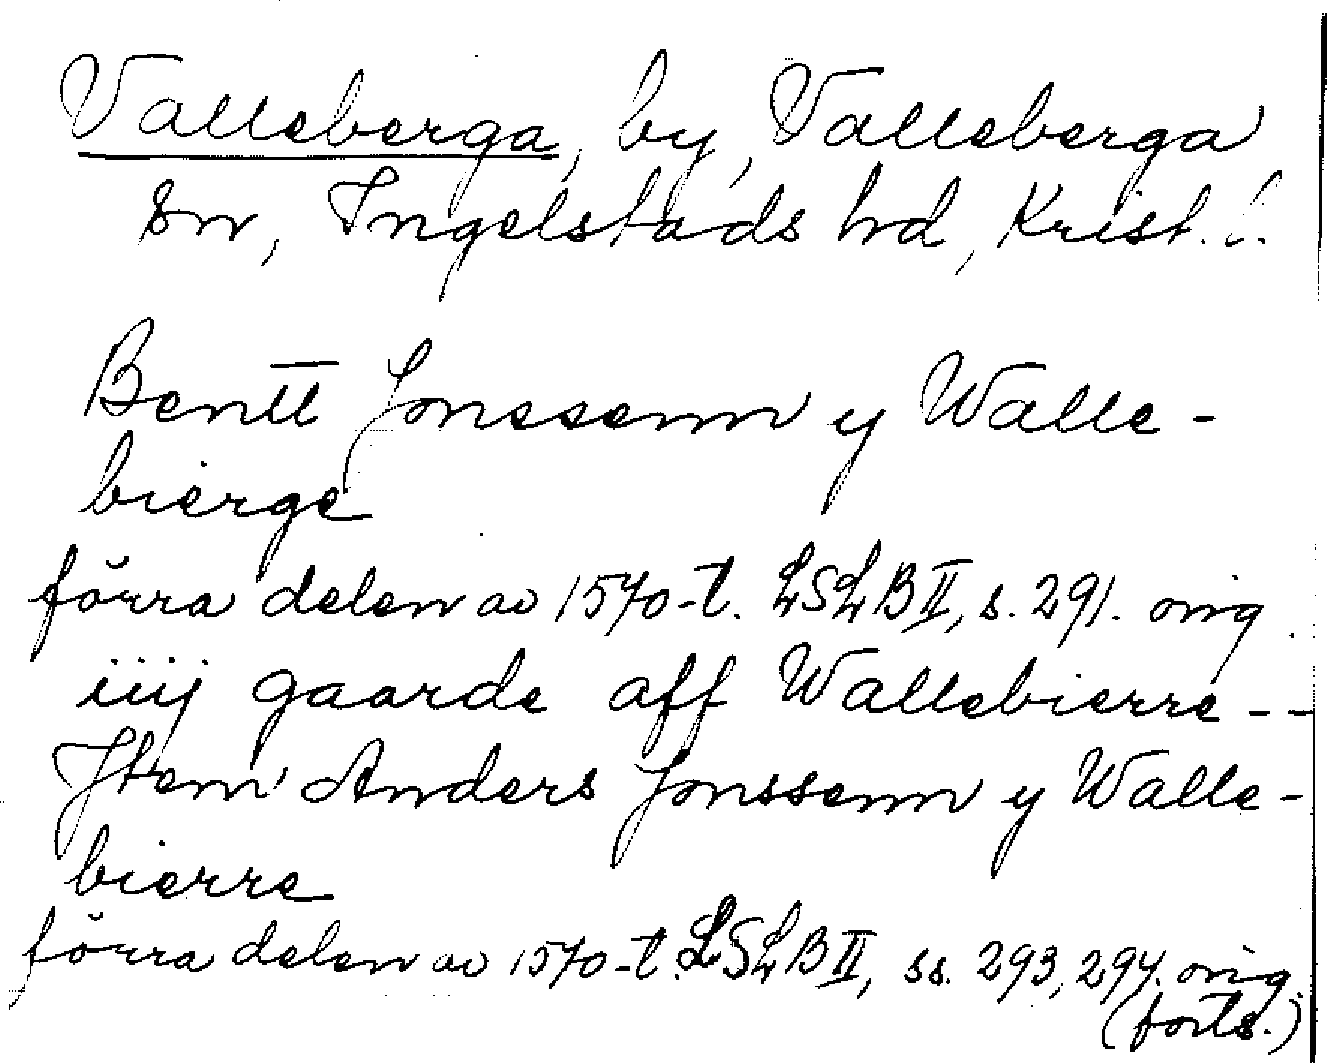 Valleberga, by, Valleberga
sn, Ingelstads hd, Krist. l.
Bentt Jonssenn y Walle-
bierge
förra delen av 1570-t. LSLB II, s. 291. orig.
iiij gaarde aff Wallebierre --
Jtem Anders Jonssenn y Walle-
bierre
förra delen av 1570-t. LSLB II, ss. 293, 294. orig.
(forts.)